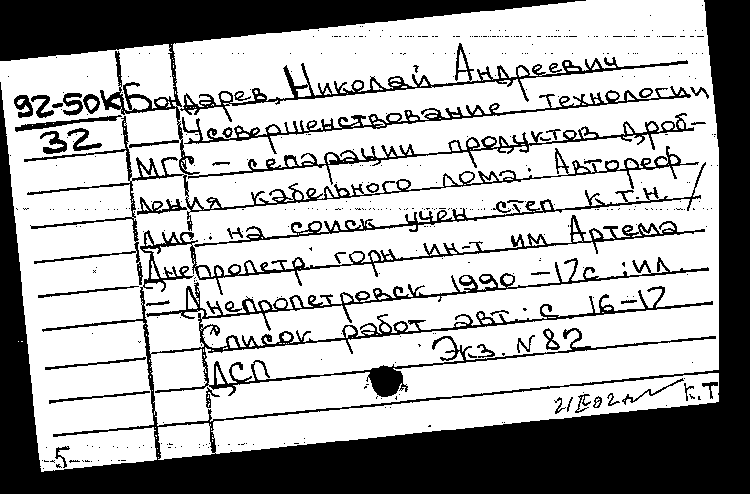 92-50К Бондарев, Николай Андреевич
32 Усовершенствование технологии
МГС - сепарации продуктов дроб-
ления кабельного лома: Автореф
дис. на соиск учен степ. к.т.н. /
Днепропетр. горн ин-т им Артема
- Днепропетровск, 1990 - 17с : ил.
Список работ авт.: с. 16-17
ДСП Экз. N 82
К.Т.
5